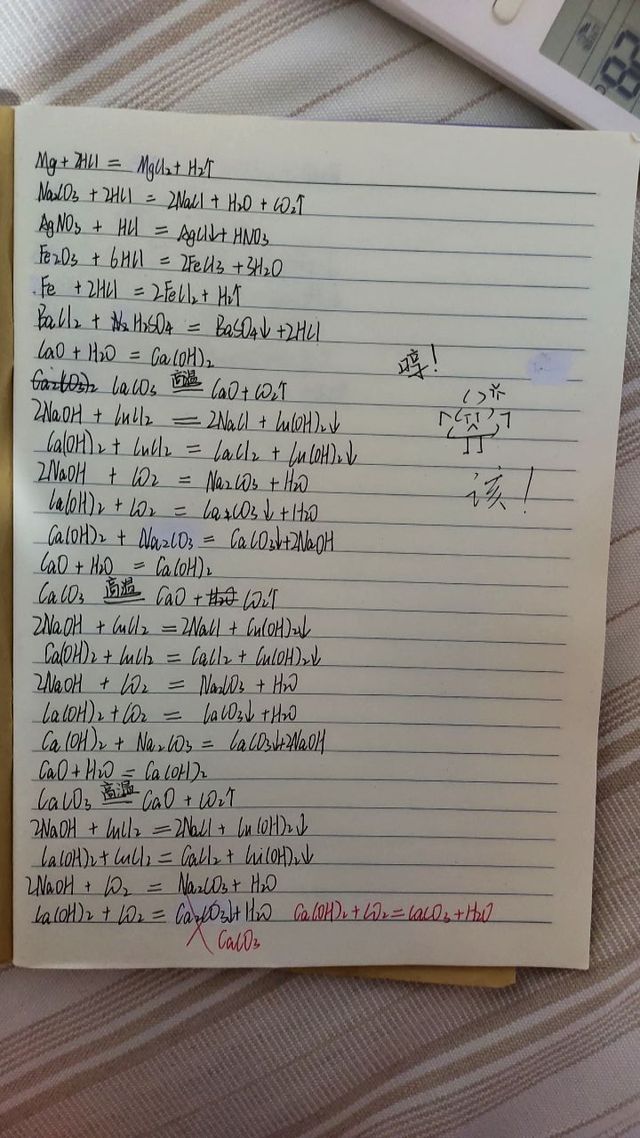 Mg + 2HCl = MgCl₂ + H₂↑
Na₂CO₃ + 2HCl = 2NaCl + H₂O + CO₂↑
AgNO₃ + HCl = AgCl↓ + HNO₃
Fe₂O₃ + 6HCl = 2FeCl₃ + 3H₂O
Fe + 2HCl = 2FeCl₂ + H₂↑
BaCl₂ + H₂SO₄ = BaSO₄↓ + 2HCl
CaO + H₂O = Ca(OH)₂
哼!
CaCO₃ 高温 CaO + CO₂↑
2NaOH + CuCl₂ = 2NaCl + Cu(OH)₂↓
Ca(OH)₂ + CuCl₂ = CaCl₂ + Cu(OH)₂↓
2NaOH + CO₂ = Na₂CO₃ + H₂O
该!
Ca(OH)₂ + CO₂ = Ca₂CO₃↓ + H₂O
Ca(OH)₂ + Na₂CO₃ = CaCO₃↓+2NaOH
CaO + H₂O = Ca(OH)₂
CaCO₃ 高温 CaO + CO₂↑
2NaOH + CuCl₂ = 2NaCl + Cu(OH)₂↓
Ca(OH)₂ + CuCl₂ = CaCl₂ + Cu(OH)₂↓
2NaOH + CO₂ = Na₂CO₃ + H₂O
Ca(OH)₂ + CO₂ = CaCO₃↓ + H₂O
Ca(OH)₂ + Na₂CO₃ = CaCO₃↓+2NaOH
CaO + H₂O = Ca(OH)₂
CaCO₃ 高温 CaO + CO₂↑
2NaOH + CuCl₂ = 2NaCl + Cu(OH)₂↓
Ca(OH)₂ + CuCl₂ = CaCl₂ + Cu(OH)₂↓
2NaOH + CO₂ = Na₂CO₃ + H₂O
Ca(OH)₂ + CO₂ = Ca₂CO₃↓ + H₂O Ca(OH)₂ + CO₂ = CaCO₃ + H₂O
CaCO₃